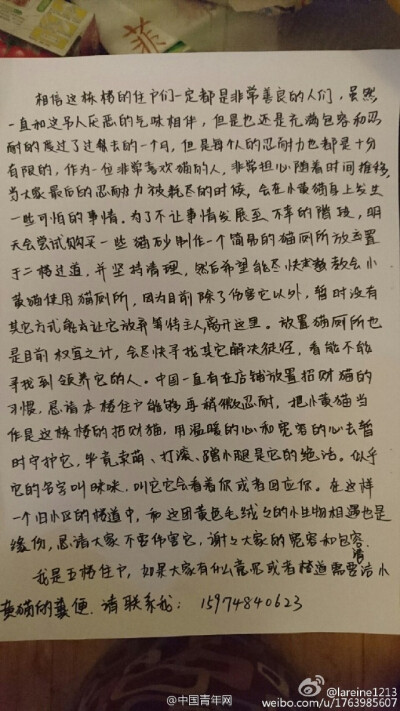 菲
相信这栋楼的住户们一定都是非常善良的人们，虽然
一直和这令人厌恶的气味相伴，但是也还是充满包容和忍
耐的度过了过去的一个月，但是每个人的忍耐力也都是十分
有限的，作为一位非常喜欢猫的人，非常担心随着时间推移，
当大家最后的忍耐力被耗尽的时候，会在小黄猫身上发生
一些可怕的事情。为了不让事情发展至不幸的阶段，明
天会尝试购买一些猫砂制作一个简易的猫厕所放置
于二楼过道，并坚持清理，然后希望能尽快教会小
黄猫使用猫厕所，因为目前除了伤害它以外，暂时没有
其它方式能去让它放弃等待主人离开这里。放置猫厕所也
是目前权宜之计，会尽快寻找其它解决途径，看能不能
寻找到领养它的人。中国一直有在店铺放置招财猫的
习惯，恳请本楼住户能够再稍微忍耐，把小黄猫当
作是这栋楼的招财猫，用温暖的心和宽容的心去暂
时守护它，毕竟卖萌、打滚、蹭小腿是它的绝活。似乎
它的名字叫咪咪，叫它它会看着你或者回应你。在这样
一个旧小区的楼道中，和这团黄色毛绒々的小生物相遇也是
缘份，恳请大家不要伤害它，谢々大家的宽容和包容
我是五楼住户，如果大家有什么意思或者楼道需要清小
黄猫的粪便，请联系我：15974840623
@中国青年网
@lareine1213
weibo.com/u/1763985607